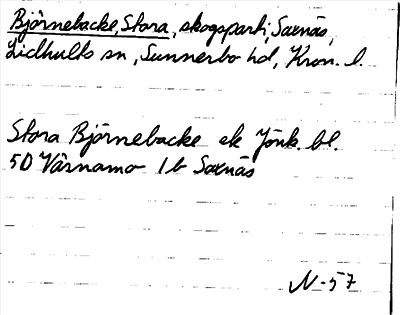 Björnebacke, Stora, skogsparti, Saxnäs,
Lidhults sn, Sunnerbo hd, Kron. l.
Stora Björnebacke ek Jönk. bl.
5D Värnamo 1b Saxnäs
N-57